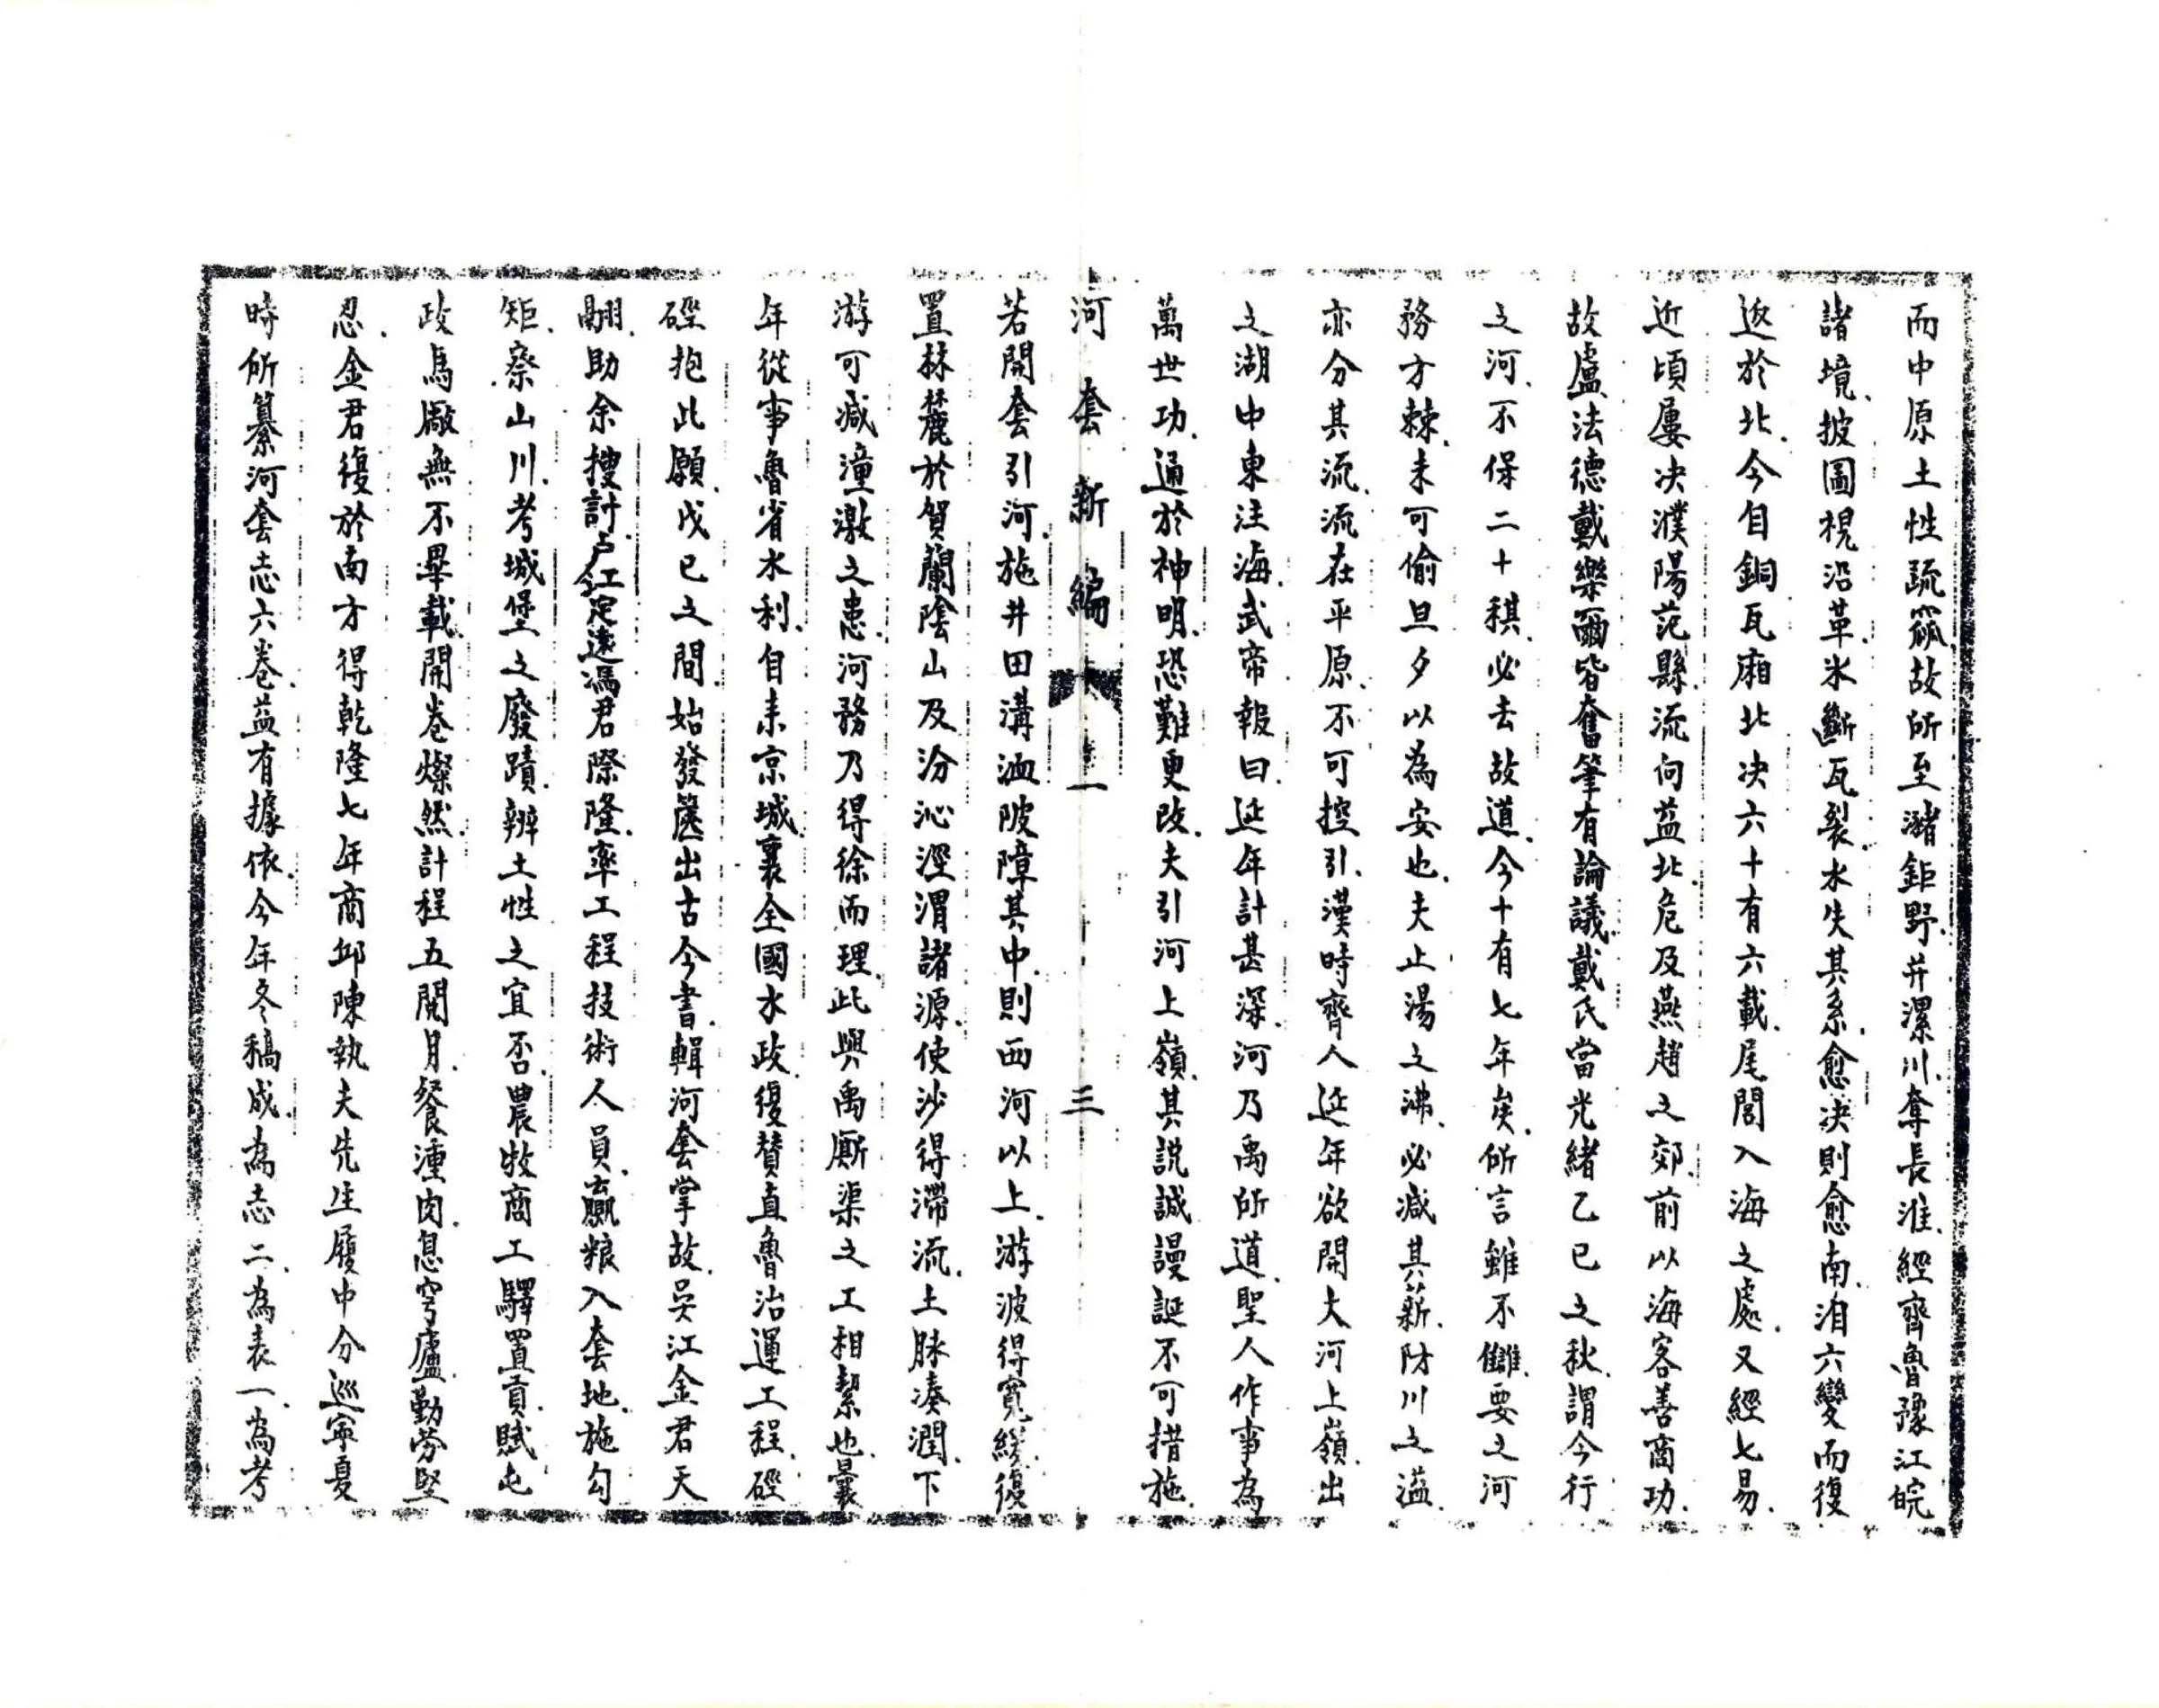 而中原土性疏窳、故所至瀦鉅野、并漯川、奪長淮、經齊魯豫江皖
諸境、披圖視沿革、氷斷瓦裂、水失其系、愈决則愈南、洎六變而復
返於北、今自銅瓦廂北决六十有六載、尾閭入海之處、又經七易、
近頃屢决濮陽范縣、流向益北、危及燕趙之郊、前以海客善商功、
故盧法德戴樂爾皆奮筆有論議、戴氏當光緒乙巳之秋、謂今行
之河、不保二十稘、必去故道、今十有七年矣、所言雖不讎、要之河
務方棘、未可偷旦夕以為安也、夫止湯之沸、必减其薪、防川之溢、
亦分其流、流在平原、不可控引、漢時齊人延年欲開大河上嶺、出
之湖中東注海、武帝報曰、延年計甚深、河乃禹所道、聖人作事為
萬世功、通於神明、恐難更改、夫引河上嶺、其説誠謾誕不可措施、
河套新編 一 三
若開套引河、施井田溝洫陂障其中、則西河以上、游波得寬緩、復
置林麓於賀蘭陰山及汾沁涇渭諸源、使沙得滯流、土脉湊潤、下
游可减潼潡之患、河務乃得徐而理、此與禹厮渠之工相絜也、曩
年從事魯省水利、自来京城、襄全國水政、復贊直魯治運工程、硜
硜抱此願、戊已之間、始發篋出古今書、輯河套掌故、吳江金君天
翮、助余搜討、盧江定遠馮君際隆、率工程技術人員、贏粮入套地、施勾
矩、察山川、考城堡之廢蹟、辨土性之宜否、農牧商工驛置貢賦屯
政馬厰無不畢載、開卷燦然、計程五閲月、餐湩肉、息穹廬、勤劳堅
忍、金君復於南方得乾隆七年商邱陳執夫先生履中分巡寧夏
時所纂河套志六卷、益有據依、今年冬稿成、為志二、為表一、為考